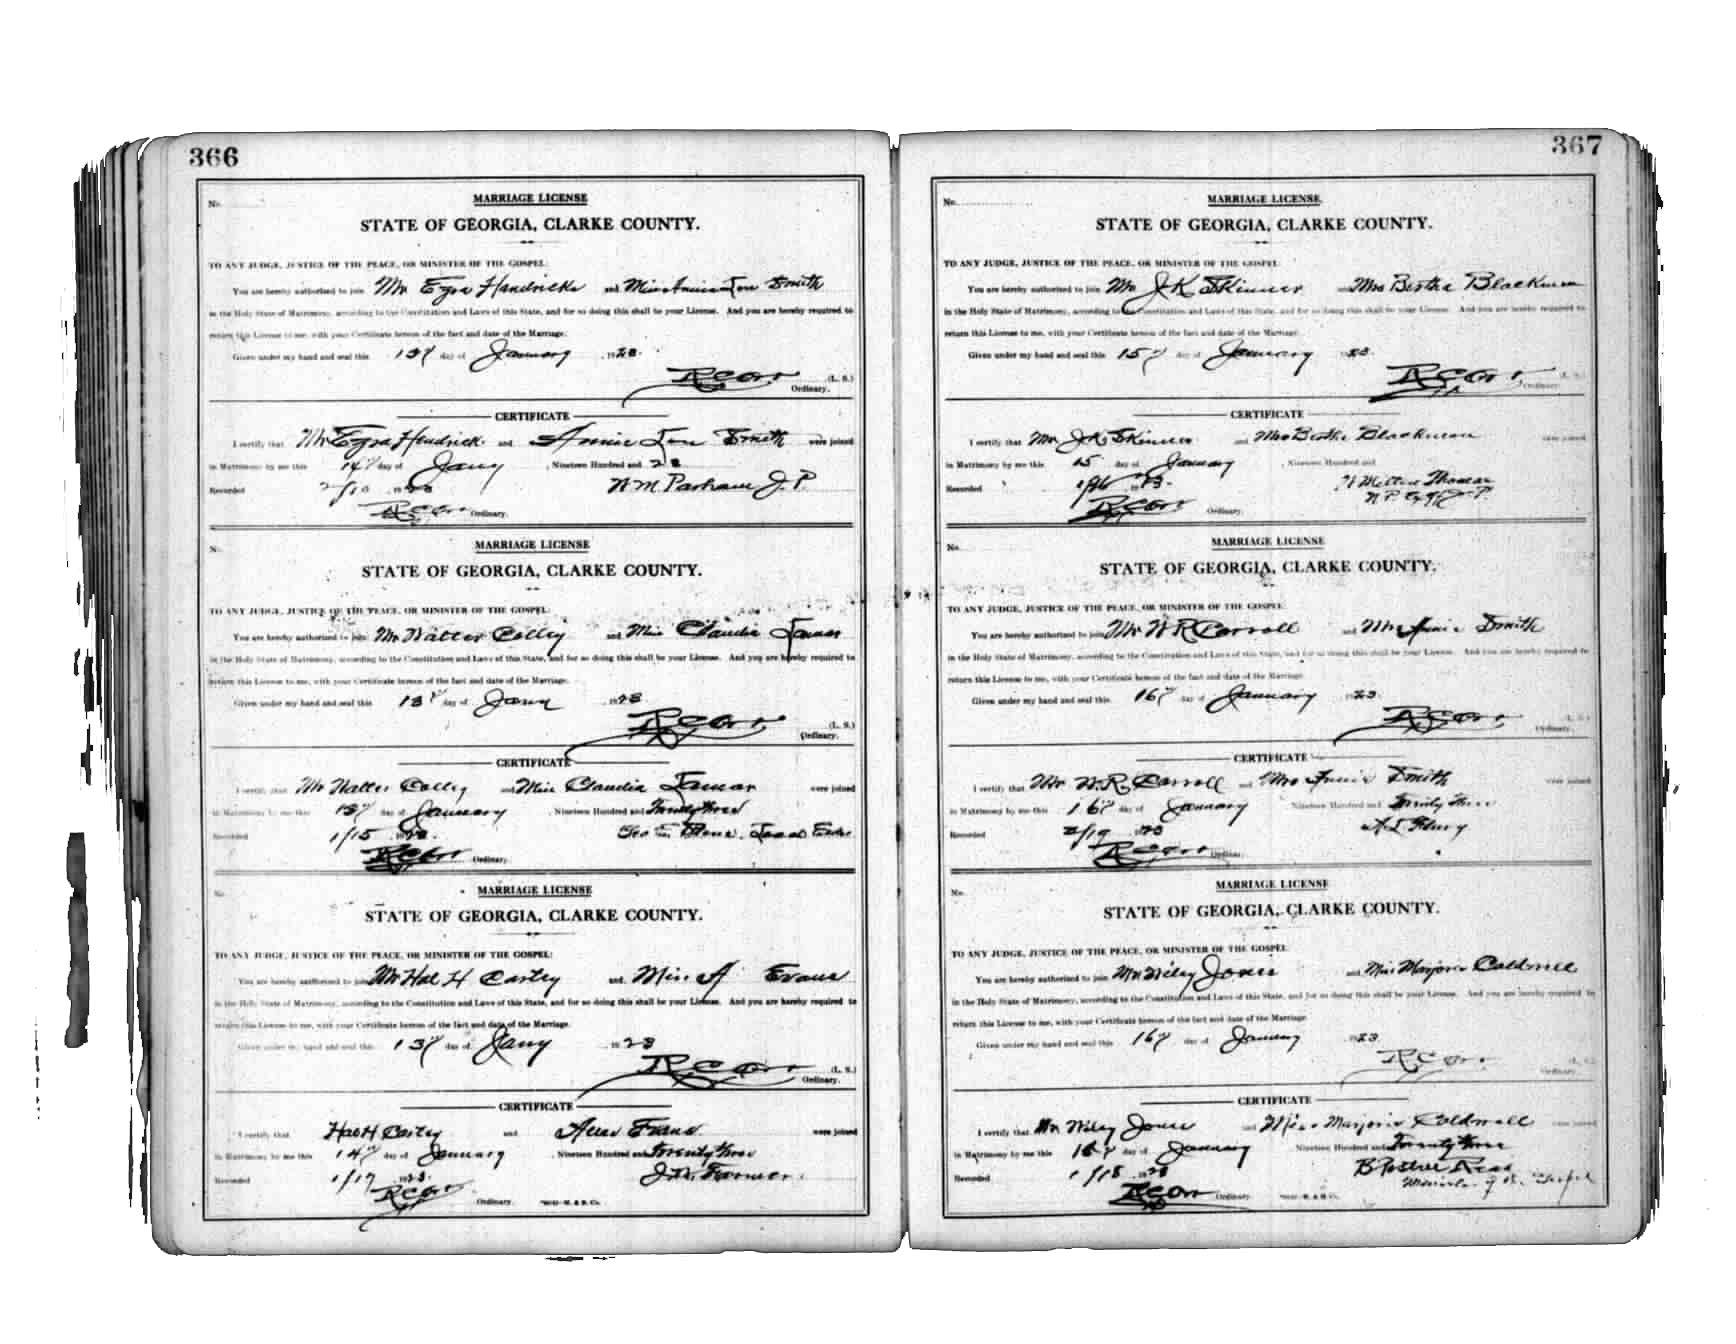 366
No.
MARRIAGE LICENSE
STATE OF GEORGIA, CLARKE COUNTY.
TO ANY JUDGE, JUSTICE OF THE PEACE, OR MINISTER OF THE GOSPEL:
You are hereby authorized to join Mr Ezra Hendricks and Miss Annie Lou Smith
in the Holy State of Matrimony, according to the Constitution and Laws of this State, and for so doing this shall be your License. And you are hereby required to
return this License to me, with your Certificate hereon of the fact and date of the Marriage.
Given under my hand and seal this 13th day of January 1923.
R C Orr (L. S.)
Ordinary.
CERTIFICATE
I certify that Mr Ezra Hendrick and Annie Lou Smith were joined
in Matrimony by me this 14th day of Jany, Nineteen Hundred and 23
Recorded 2/10 1923 W M Parham J. P.
R C Orr Ordinary.
No.
MARRIAGE LICENSE
STATE OF GEORGIA, CLARKE COUNTY.
TO ANY JUDGE, JUSTICE OF THE PEACE, OR MINISTER OF THE GOSPEL:
You are hereby authorized to join Mr Walter Colley and Miss Claudia Lamar
in the Holy State of Matrimony, according to the Constitution and Laws of this State, and for so doing this shall be your License. And you are hereby required to
return this License to me, with your Certificate hereon of the fact and date of the Marriage.
Given under my hand and seal this 13th day of Jany 1923
R C Orr (L. S.)
Ordinary.
CERTIFICATE
I certify that Mr Walter Colley and Miss Claudia Lamar were joined
in Matrimony by me this 13th day of January, Nineteen Hundred and Twenty three
Recorded 1/15 1923. Geo S.
R C Orr Ordinary.
No.
MARRIAGE LICENSE
STATE OF GEORGIA, CLARKE COUNTY.
TO ANY JUDGE, JUSTICE OF THE PEACE, OR MINISTER OF THE GOSPEL:
You are hereby authorized to join Mr Hal H and Miss A Evans
in the Holy State of Matrimony, according to the Constitution and Laws of this State, and for so doing this shall be your License. And you are hereby required to
return this License to me, with your Certificate hereon of the fact and date of the Marriage.
Given under my hand and seal this 13th day of Jany 1923
R C Orr (L. S.)
Ordinary.
CERTIFICATE
I certify that Hal H and Evans were joined
in Matrimony by me this 14th day of January, Nineteen Hundred and Twenty three
Recorded 1/17 1923. Farmer
R C Orr Ordinary.
367
No.
MARRIAGE LICENSE
STATE OF GEORGIA, CLARKE COUNTY.
TO ANY JUDGE, JUSTICE OF THE PEACE, OR MINISTER OF THE GOSPEL:
You are hereby authorized to join Mr J K Skinner and Mrs Bertha Blackmon
in the Holy State of Matrimony, according to the Constitution and Laws of this State, and for so doing this shall be your License. And you are hereby required to
return this License to me, with your Certificate hereon of the fact and date of the Marriage.
Given under my hand and seal this 15th day of January 1923.
R C Orr (L. S.)
Ordinary.
CERTIFICATE
I certify that Mr J K Skinner and Mrs Bertha Blackmon were joined
in Matrimony by me this 15 day of January, Nineteen Hundred and
Recorded 1/16 1923. Thomas
R C Orr Ordinary. N. P. Ex off J. P.
No.
MARRIAGE LICENSE
STATE OF GEORGIA, CLARKE COUNTY.
TO ANY JUDGE, JUSTICE OF THE PEACE, OR MINISTER OF THE GOSPEL:
You are hereby authorized to join Mr W R Carroll and Mrs Annie Smith
in the Holy State of Matrimony, according to the Constitution and Laws of this State, and for so doing this shall be your License. And you are hereby required to
return this License to me, with your Certificate hereon of the fact and date of the Marriage.
Given under my hand and seal this 16th day of January 1923.
R C Orr (L. S.)
Ordinary.
CERTIFICATE
I certify that Mr W. R. Carroll and Mrs Annie Smith were joined
in Matrimony by me this 16th day of January Nineteen Hundred and Twenty three
Recorded 2/19 1923
R C Orr Ordinary.
No.
MARRIAGE LICENSE
STATE OF GEORGIA, CLARKE COUNTY.
TO ANY JUDGE, JUSTICE OF THE PEACE, OR MINISTER OF THE GOSPEL:
You are hereby authorized to join Mr Wiley Jones and Miss Marjorie Caldwell
in the Holy State of Matrimony, according to the Constitution and Laws of this State, and for so doing this shall be your License. And you are hereby required to
return this License to me, with your Certificate hereon of the fact and date of the Marriage.
Given under my hand and seal this 16th day of January 1923.
R C Orr (L. S.)
Ordinary.
CERTIFICATE
I certify that Mr Wiley Jones and Miss Marjorie Caldwell were joined
in Matrimony by me this day of January Nineteen Hundred and Twenty three
Recorded 1/18 1923
R C Orr Ordinary. Minister of the Gospel